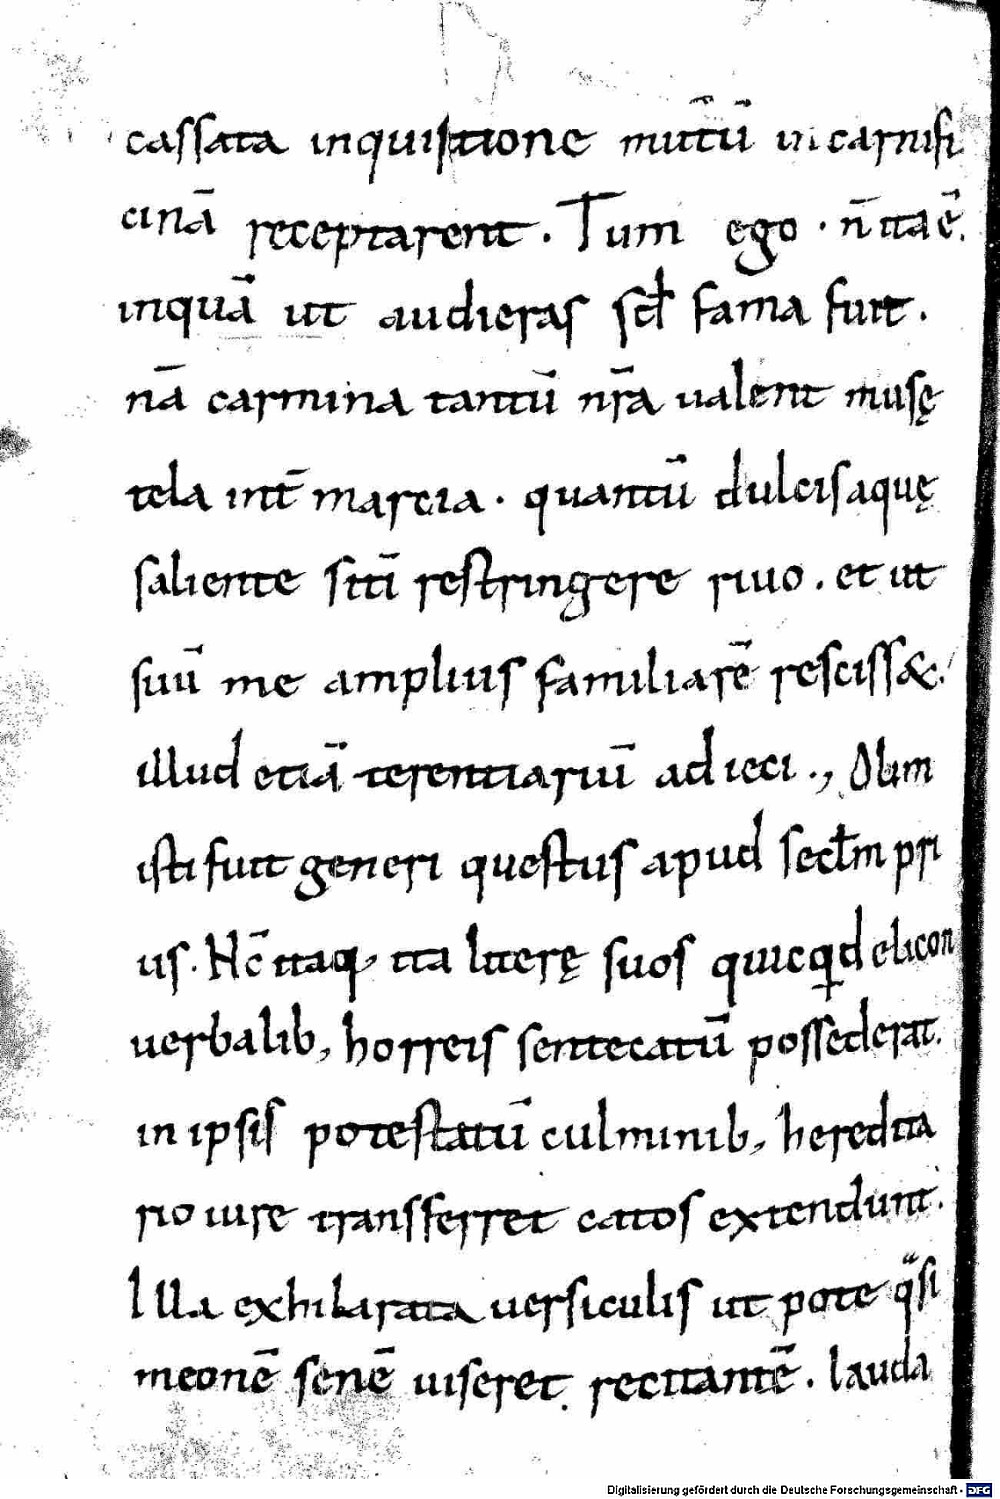 cassata inquisitione mutuū in carnifi
cinā receptarent. Tum ego. n̄ ita ē.
inquā ut audieras sꝫ fama fuit.
nā carmina tantū nr̄a ualent musę
tela int̄ marcia. quantū dulcis aquę
saliente sitī restringere riuo. et ut
suū me amplius familiarē resciss&.
illud etiā terentiarīu adieci., Olim
isti fuit generi questus apud seclm̄ pri
us. Hc̄ itaq; ita literę suos quicqd elicon
uerbalib; horreis sentecatū possederat.
in ipsis potestatū culminib; heredita
rio iure transferret catos extendunt.
Illa exhilarata uersiculis ut pote q̈si
meonē senē uiseret recitantē. lauda
Digitalisierung gefördert durch die Deutsche Forschungsgemeinschaft - DFG